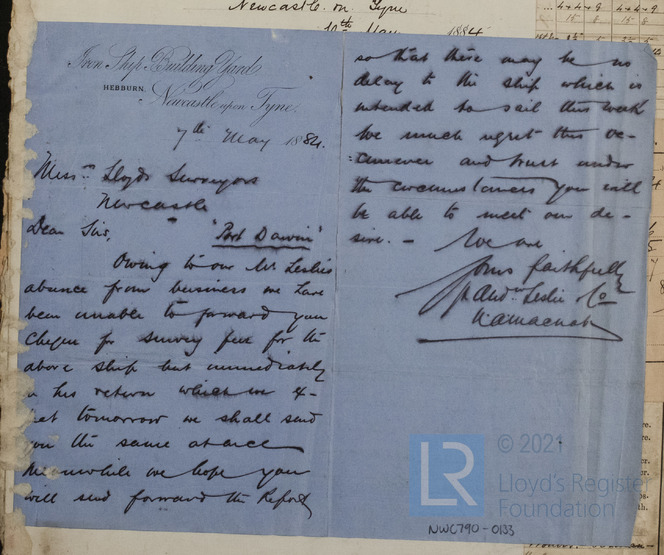 Newcastle on Tyne
1884
Iron Ship Building Yard
HEBBURN.
Newcastle upon Tyne.
7th May 1884.
Messrs Lloyds Surveyors
Newcastle
Dear Sirs,
"Port Darwin"
Owing to our Mr Leslie's
absence from business we have
been unable to forward you
cheque for survey fees for the
above ship but immediately
on his return which we ex-
pect tomorrow we shall send
you the same at once
Meanwhile we hope you
will send forward the Report
so that there may be no
delay to the ship which is
intended to sail this week
We much regret this oc-
:currence and trust under
the circumstances you will
be able to meet our de-
sire. — We are
Yours faithfully
p And. Leslie & Co
LR
© 2021
Lloyd's Register
Foundation
NWC790-0133